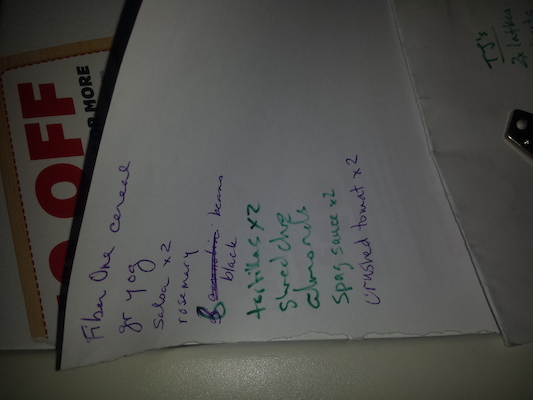 OFF
R MORE
Fiber One cereal
gr yog
salsa x2
rosemary
beans
black
tortillas x2
Shred chz
almonds
spag sauce x2
crushed tomat x2
TJ's
2x latkes